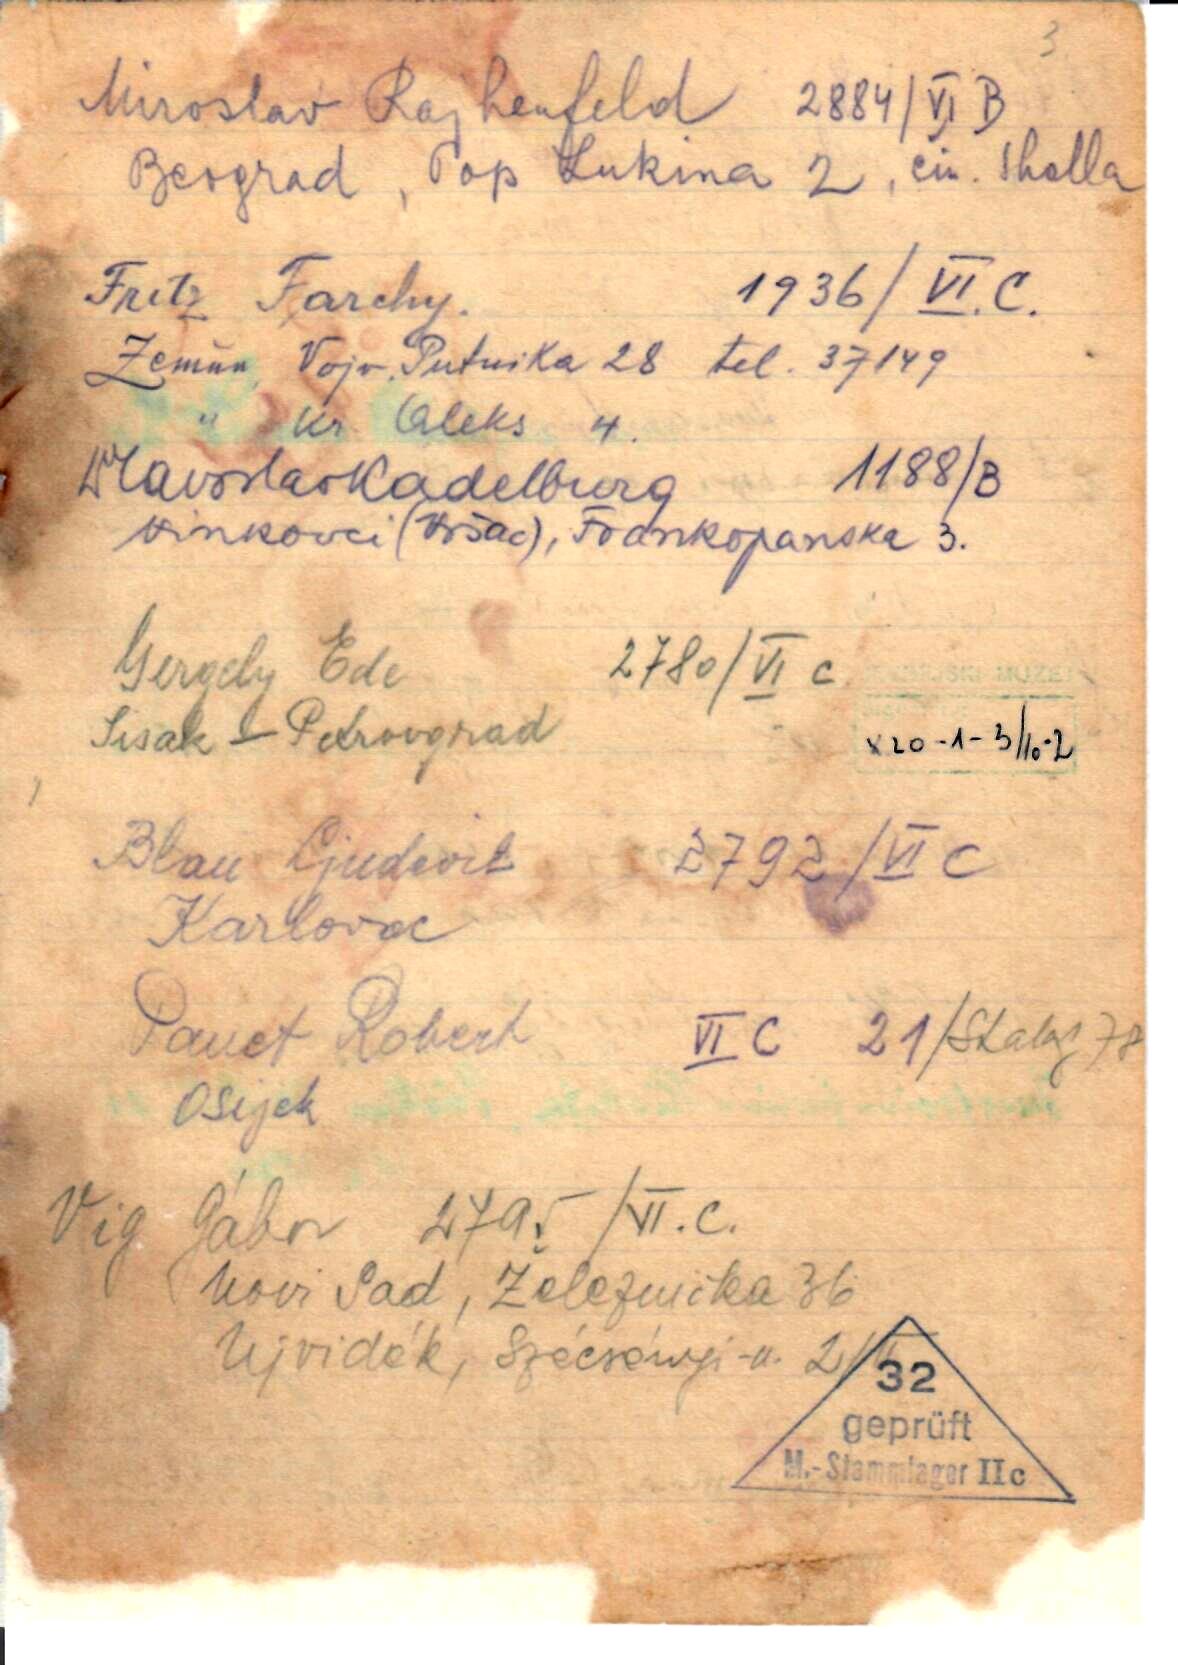 3
Miroslav Rajhenfeld 2884/VI B
Beograd, Pop Lukina 2,
Fritz Farchy. 1936/VI.C.
Zemun, Vojv. Putnika 28 tel. 37149
" Kr. Aleks 4.
Kadelburg 1188/B
Vinkovci (Vršac), Frankopanska 3.
Gergely Ede 2780/VI C
Sisak – Petrovgrad
MUZEJ
20-1-3/10-2
Blau Ljudevit 2792/VI C
Karlovac
Robert VI C 21/Stalag
Osijek
Vig Gábor 2795/VI.C.
Novi Sad, Železnička 36
Ujvidék, Szécsényi-u. 2/
32
geprüft
M.-Stammlager IIc